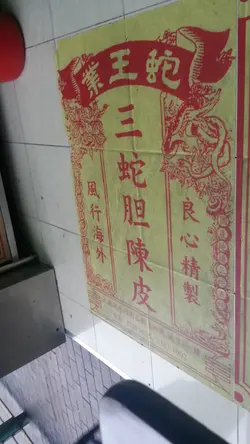 蛇王業
良心精製
三蛇胆陳皮
風行海外